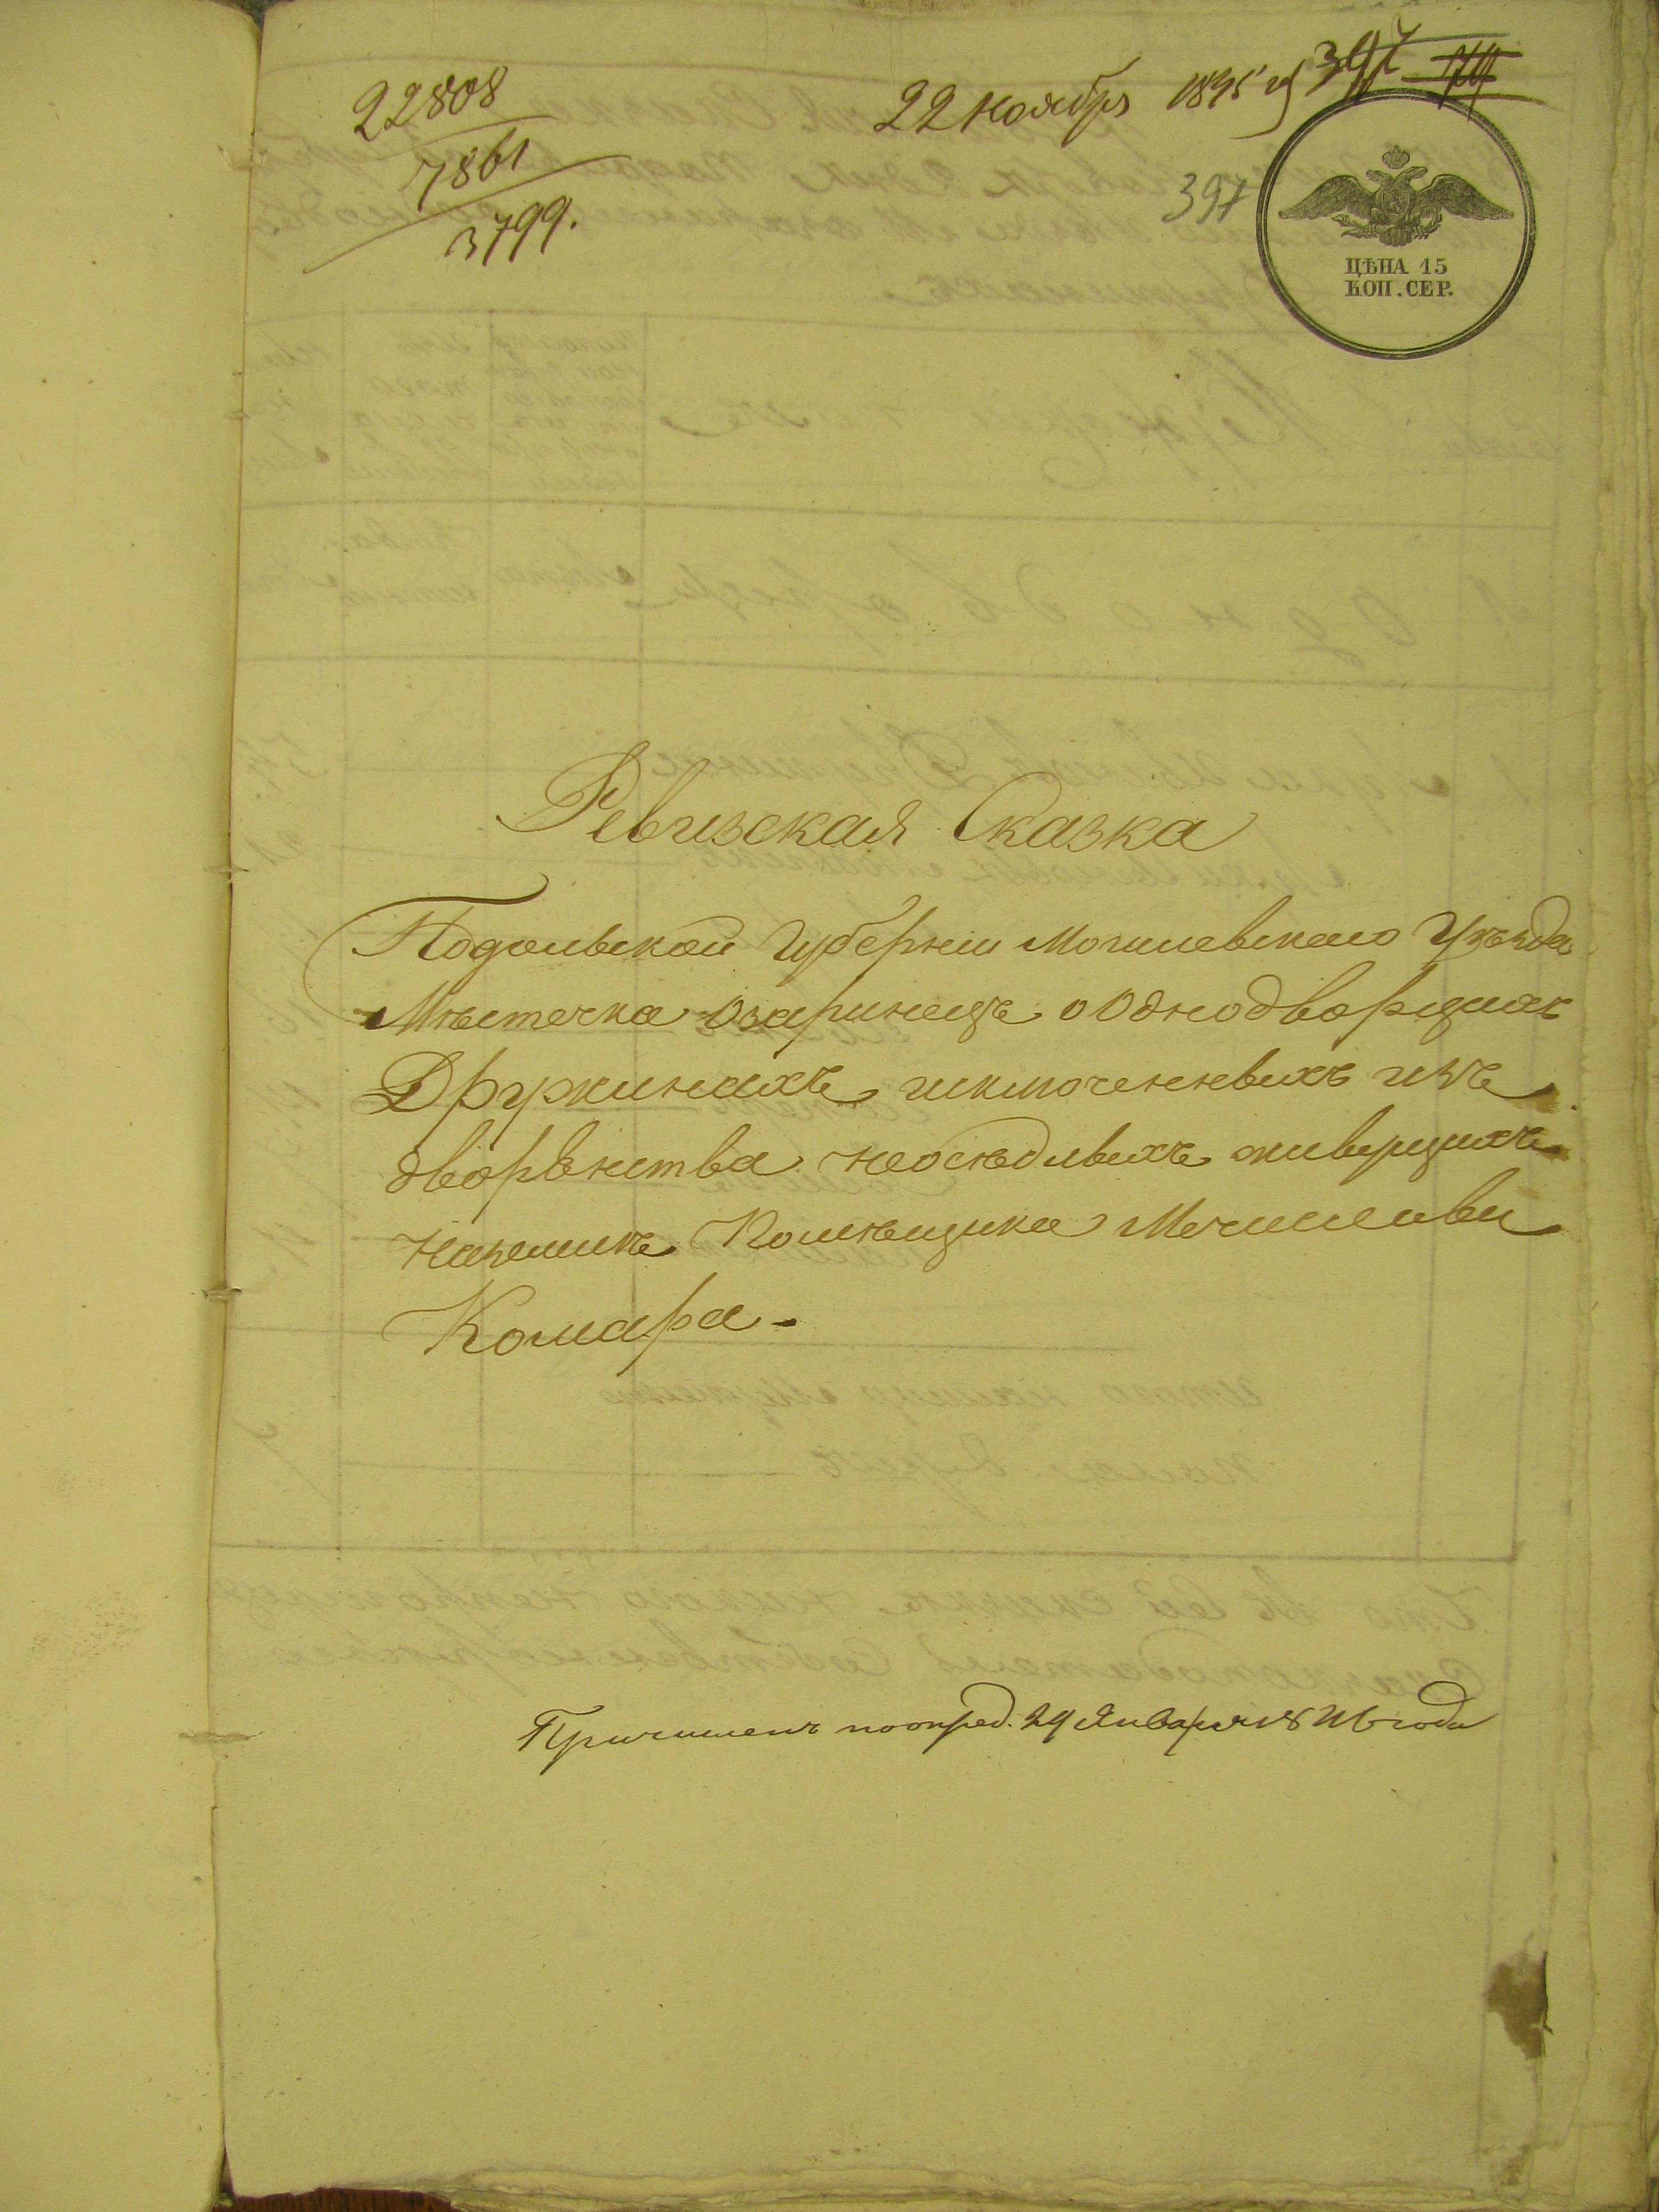 22808
7861
3799.
22 ноября 1845 г
397
397
ЦѢНА 15
КОП. СЕР.
Ревизская Сказка
Подольской Губерніи Могилевского Уѣзда
Мѣстечка Озаринецъ о Однодворцахъ
Дружинахъ изключенныхъ изъ
дворянства неосѣдлыхъ живущихъ
наземлѣ Помѣщика Мечислава
Комара -
Причисленъ по опред. 29 Января 1846 года